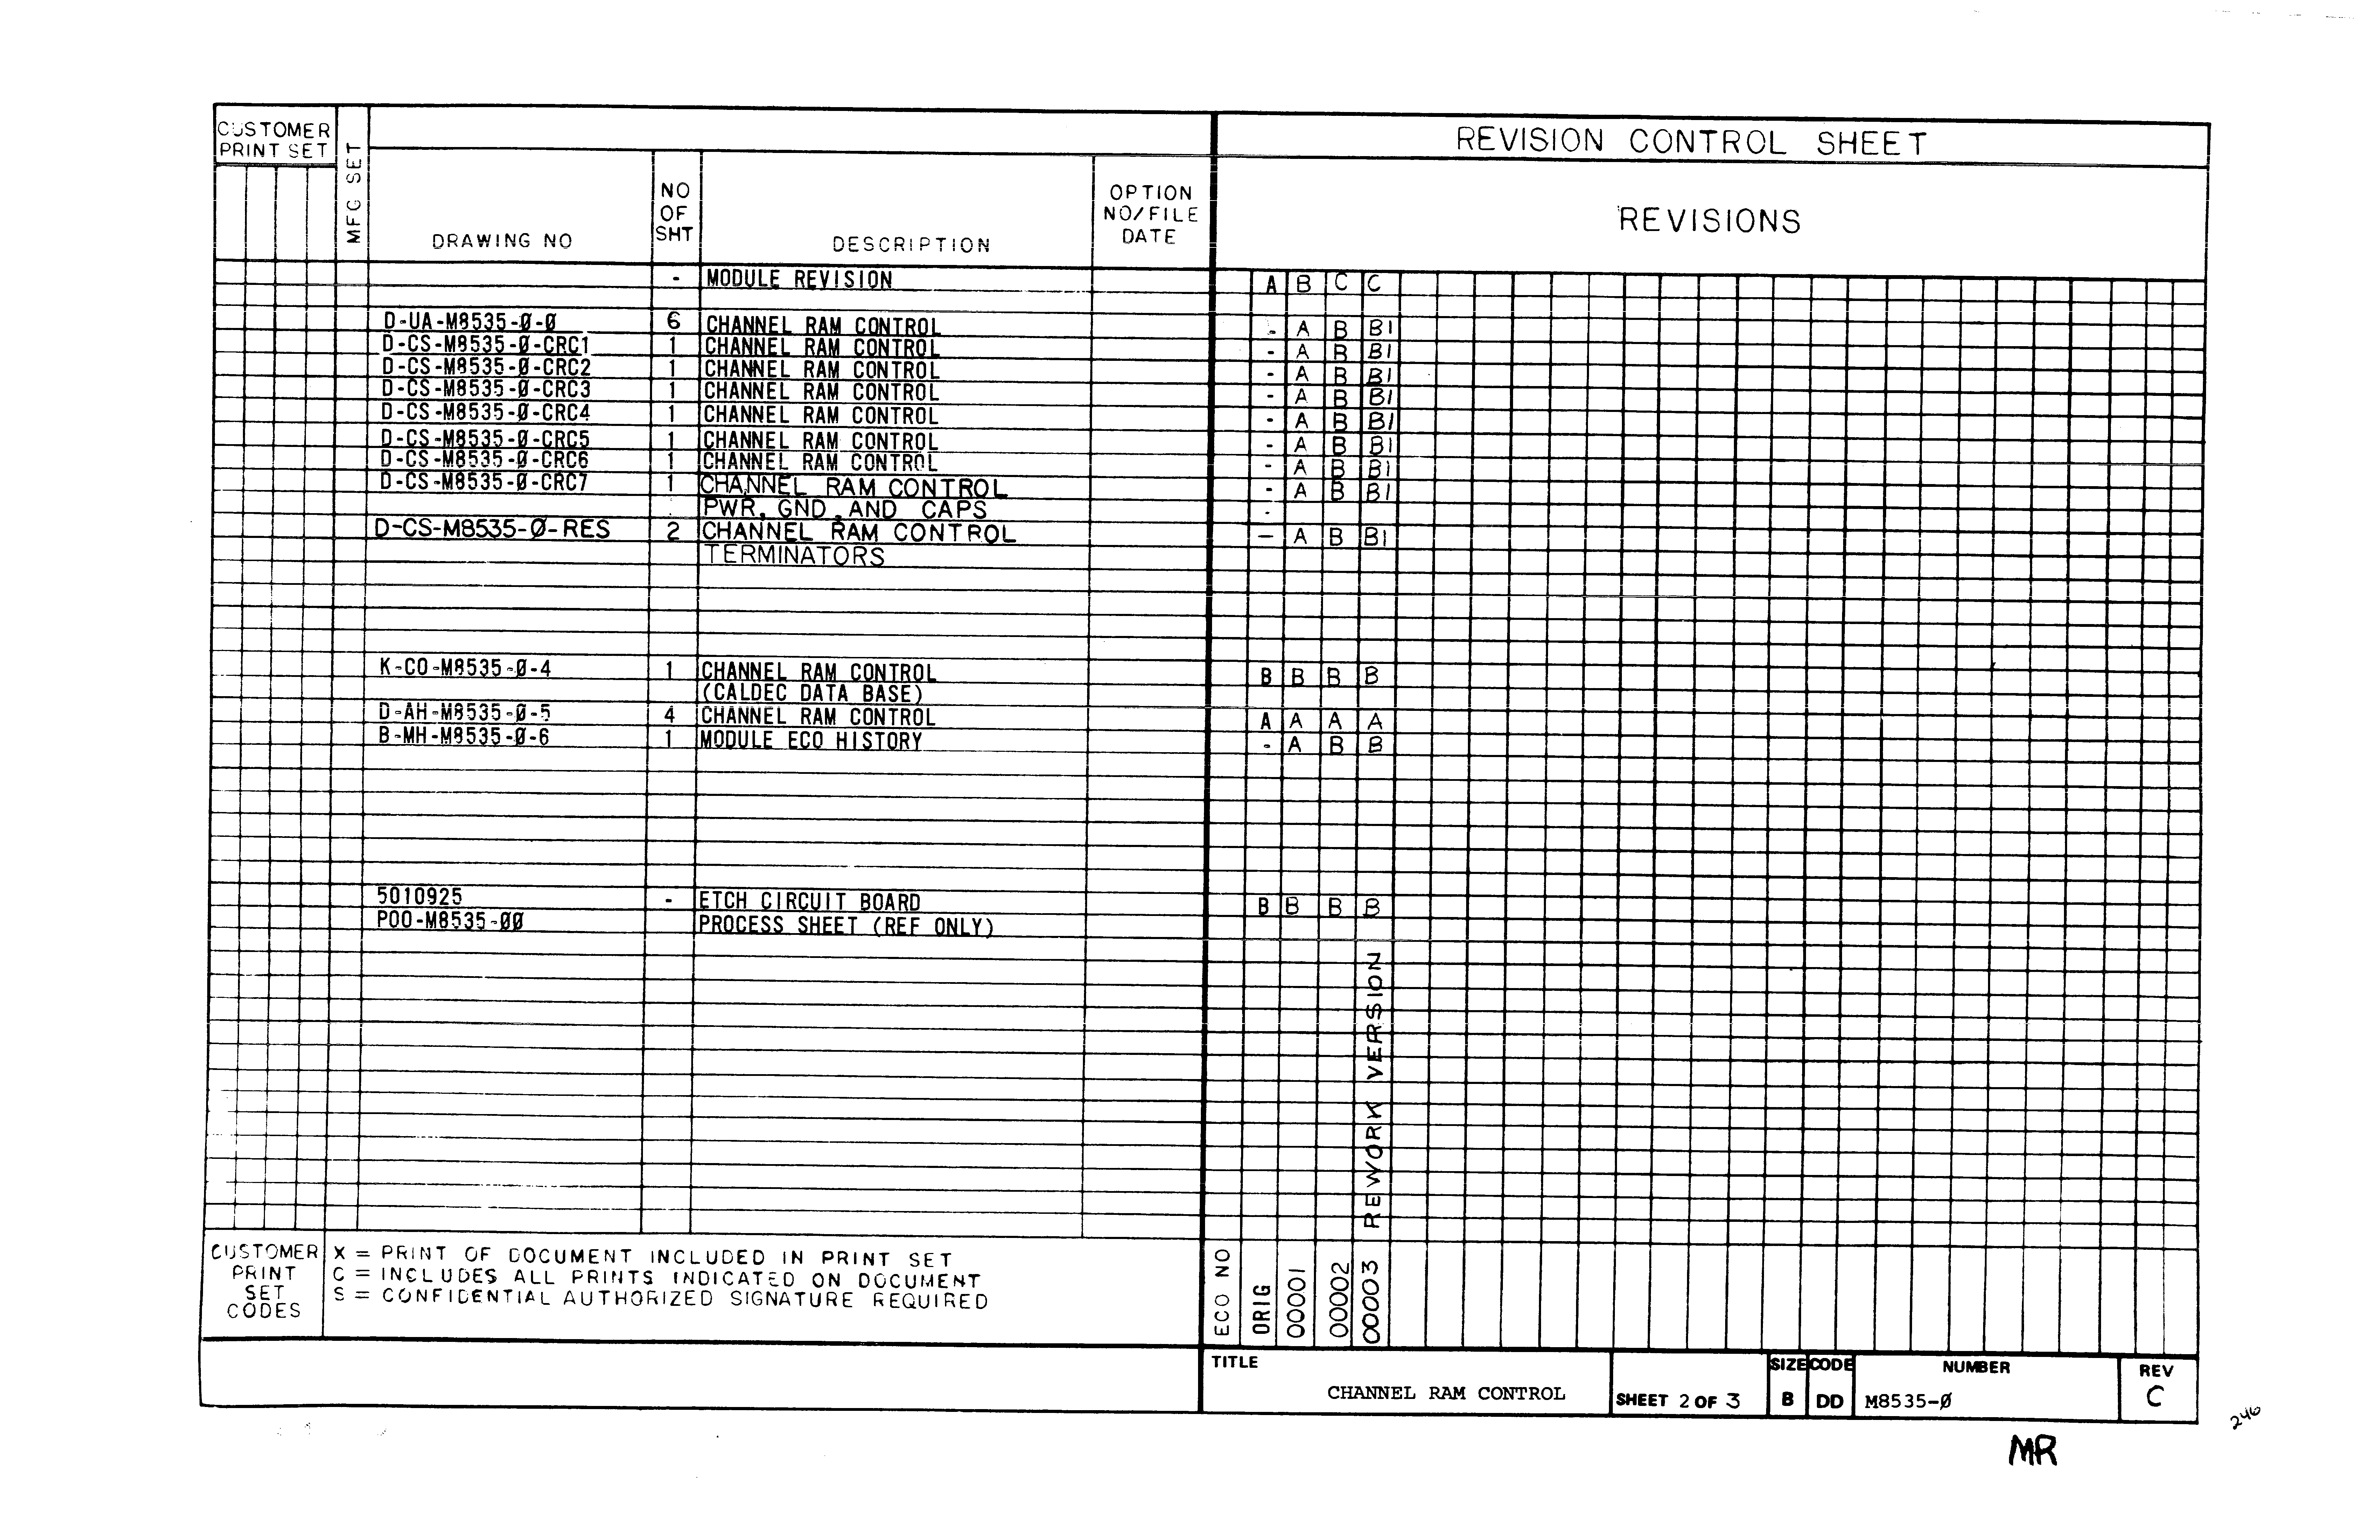 CUSTOMER PRINT SET
MFG SET
DRAWING NO
NO OF SHT
DESCRIPTION
OPTION NO/FILE DATE
REVISION CONTROL SHEET
REVISIONS
- MODULE REVISION A B C C
D-UA-M8535-Ø-Ø 6 CHANNEL RAM CONTROL - A B B1
D-CS-M8535-Ø-CRC1 1 CHANNEL RAM CONTROL - A B B1
D-CS-M8535-Ø-CRC2 1 CHANNEL RAM CONTROL - A B B1
D-CS-M8535-Ø-CRC3 1 CHANNEL RAM CONTROL - A B B1
D-CS-M8535-Ø-CRC4 1 CHANNEL RAM CONTROL - A B B1
D-CS-M8535-Ø-CRC5 1 CHANNEL RAM CONTROL - A B B1
D-CS-M8535-Ø-CRC6 1 CHANNEL RAM CONTROL - A B B1
D-CS-M8535-Ø-CRC7 1 CHANNEL RAM CONTROL - A B B1
PWR, GND, AND CAPS -
D-CS-M8535-Ø-RES 2 CHANNEL RAM CONTROL - A B B1
TERMINATORS
K-CO-M8535-Ø-4 1 CHANNEL RAM CONTROL B B B B
(CALDEC DATA BASE)
D-AH-M8535-Ø-5 4 CHANNEL RAM CONTROL A A A A
B-MH-M8535-Ø-6 1 MODULE ECO HISTORY - A B B
5010925 - ETCH CIRCUIT BOARD B B B B
P00-M8535-ØØ PROCESS SHEET (REF ONLY)
REWORK VERSION
CUSTOMER PRINT SET CODES
X = PRINT OF DOCUMENT INCLUDED IN PRINT SET
C = INCLUDES ALL PRINTS INDICATED ON DOCUMENT
S = CONFIDENTIAL AUTHORIZED SIGNATURE REQUIRED
ECO NO ORIG 00001 00002 00003
TITLE
CHANNEL RAM CONTROL
SHEET 2 OF 3
SIZE B
CODE DD
NUMBER M8535-Ø
REV C
246
MR